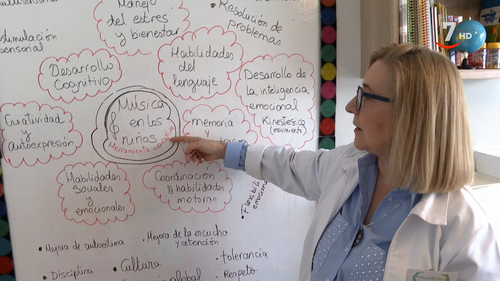 Manejo
del estres
y bienestar
Resolución de
problemas
7
HD
sensorial
Desarrollo
Cognitivo
Habilidades
del
lenguaje
Desarrollo de
la inteligencia
emocional
Kinestésica
movimiento
Música
en los
niños
Creatividad
y
Autoexpresión
memoria
y
Habilidades
sociales
y
emocionales
Coordinación
y habilidades
motoras
emocional
• Mejora de autoestima
• Mejora de la escucha
y atención
• Disciplina
• Cultura
• tolerancia
• Respeto
global